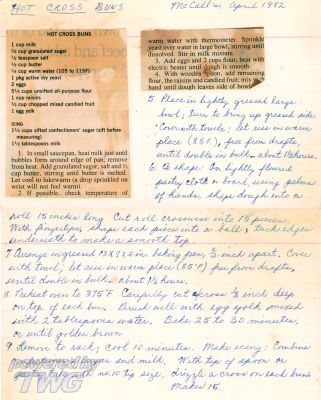 HOT CROSS BUNS
McCall's April 1982
HOT CROSS BUNS
1 cup milk
¼ cup granulated sugar
½ teaspoon salt
¼ cup butter
¼ cup warm water (105 to 115F)
1 pkg active dry yeast
2 eggs
cups unsifted all-purpose flour
1 cup raisins
½ cup chopped mixed candied fruit
1 egg yolk
ICING
1¼ cups sifted confectioners' sugar (sift before measuring)
1½ tablespoons milk
1. In small saucepan, heat milk just until
bubbles form around edge of pan; remove
from heat. Add granulated sugar, salt and ¼
cup butter, stirring until butter is melted.
Let cool to lukewarm (a drop sprinkled on
wrist will not feel warm).
2. If possible, check temperature of
warm water with thermometer. Sprinkle
yeast over water in large bowl, stirring until
dissolved. Stir in milk mixture.
3. Add eggs and 2 cups flour; beat with
electric beater until dough is smooth.
4. With wooden spoon, add remaining
flour, the raisins and candied fruit; mix by
hand until dough leaves side of bowl.
5. Place in lightly greased large
bowl; turn to bring up greased side.
Cover with towel; let rise in warm
place (85F), free from drafts,
until double in bulk - about 1½ hours.
6. to shape: On lightly floured
pastry cloth or board, using palms
of hands, shape dough into a
roll 15 inches long. Cut roll crosswise into 15 pieces.
With fingertips, shape each piece into a ball; tuck edges
underneath to make a smooth top.
7. Arrange in greased 13x9x2 in. baking pan, ½ inch apart. Cover
with towel; let rise in warm place (85°F) free from drafts,
until double in bulk - about 1½ hours.
8. Preheat oven to 375F Carefully cut a cross ½ inch deep
on top of each bun. Brush well with egg yolk, mixed
with 2 tablespoons water. Bake 25 to 30 minutes,
or until golden brown
9. Remove to rack; cool 10 minutes. Make icing: Combine
sugar and milk. With tip of spoon or
no. 10 tip size, drizzle a cross on each bun.
Makes 15.
powered by
TWG